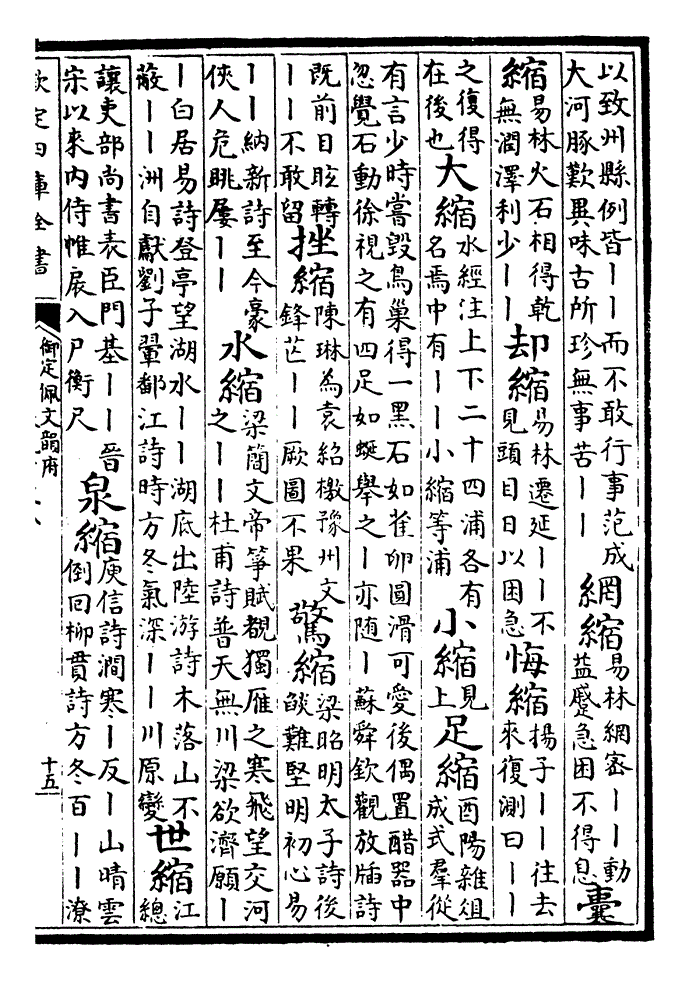 以致州縣例皆丨丨而不敢行事范成
大河豚歎異味古所珍無事苦丨丨
網縮
易林網密丨丨動
益蹙急困不得息
囊
縮
易林火石相得乾
無潤澤利少丨丨
却縮
易林遷延丨丨不
見頭目日以困急
悔縮
揚子丨丨往去
來復測曰丨丨
之復得
在後也
大縮
水經注上下二十四浦各有
名焉中有丨丨小縮等浦
小縮
見
上
足縮
酉陽雜俎
成式羣從
有言少時嘗毀鳥巢得一黑石如雀卵圓滑可愛後偶置醋器中
忽覺石動徐視之有四足如蜒舉之丨亦随丨蘇舜欽觀放牐詩
既前日眩轉
丨丨不敢留
挫縮
陳琳為袁紹檄豫州文
鋒芒丨丨厥圖不果
驚縮
梁昭明太子詩後
燄難堅明初心易
丨丨納新詩至今豪
俠人危眺屢丨丨
水縮
梁簡文帝箏賦覩獨雁之寒飛望交河
之丨丨杜甫詩普天無川梁欲濟願丨
丨白居易詩登亭望湖水丨丨湖底出陸游詩木落山不
蔽丨丨洲自獻劉子翬鄱江詩時方冬氣深丨丨川原變
世縮
江
總
讓吏部尚書表臣門基丨丨晉
宋以來內侍帷扆入尸衡尺
泉縮
庾信詩澗寒丨反丨山晴雲
倒回柳貫詩方冬百丨丨潦
欽定四庫全書
御定佩文韻府
十五